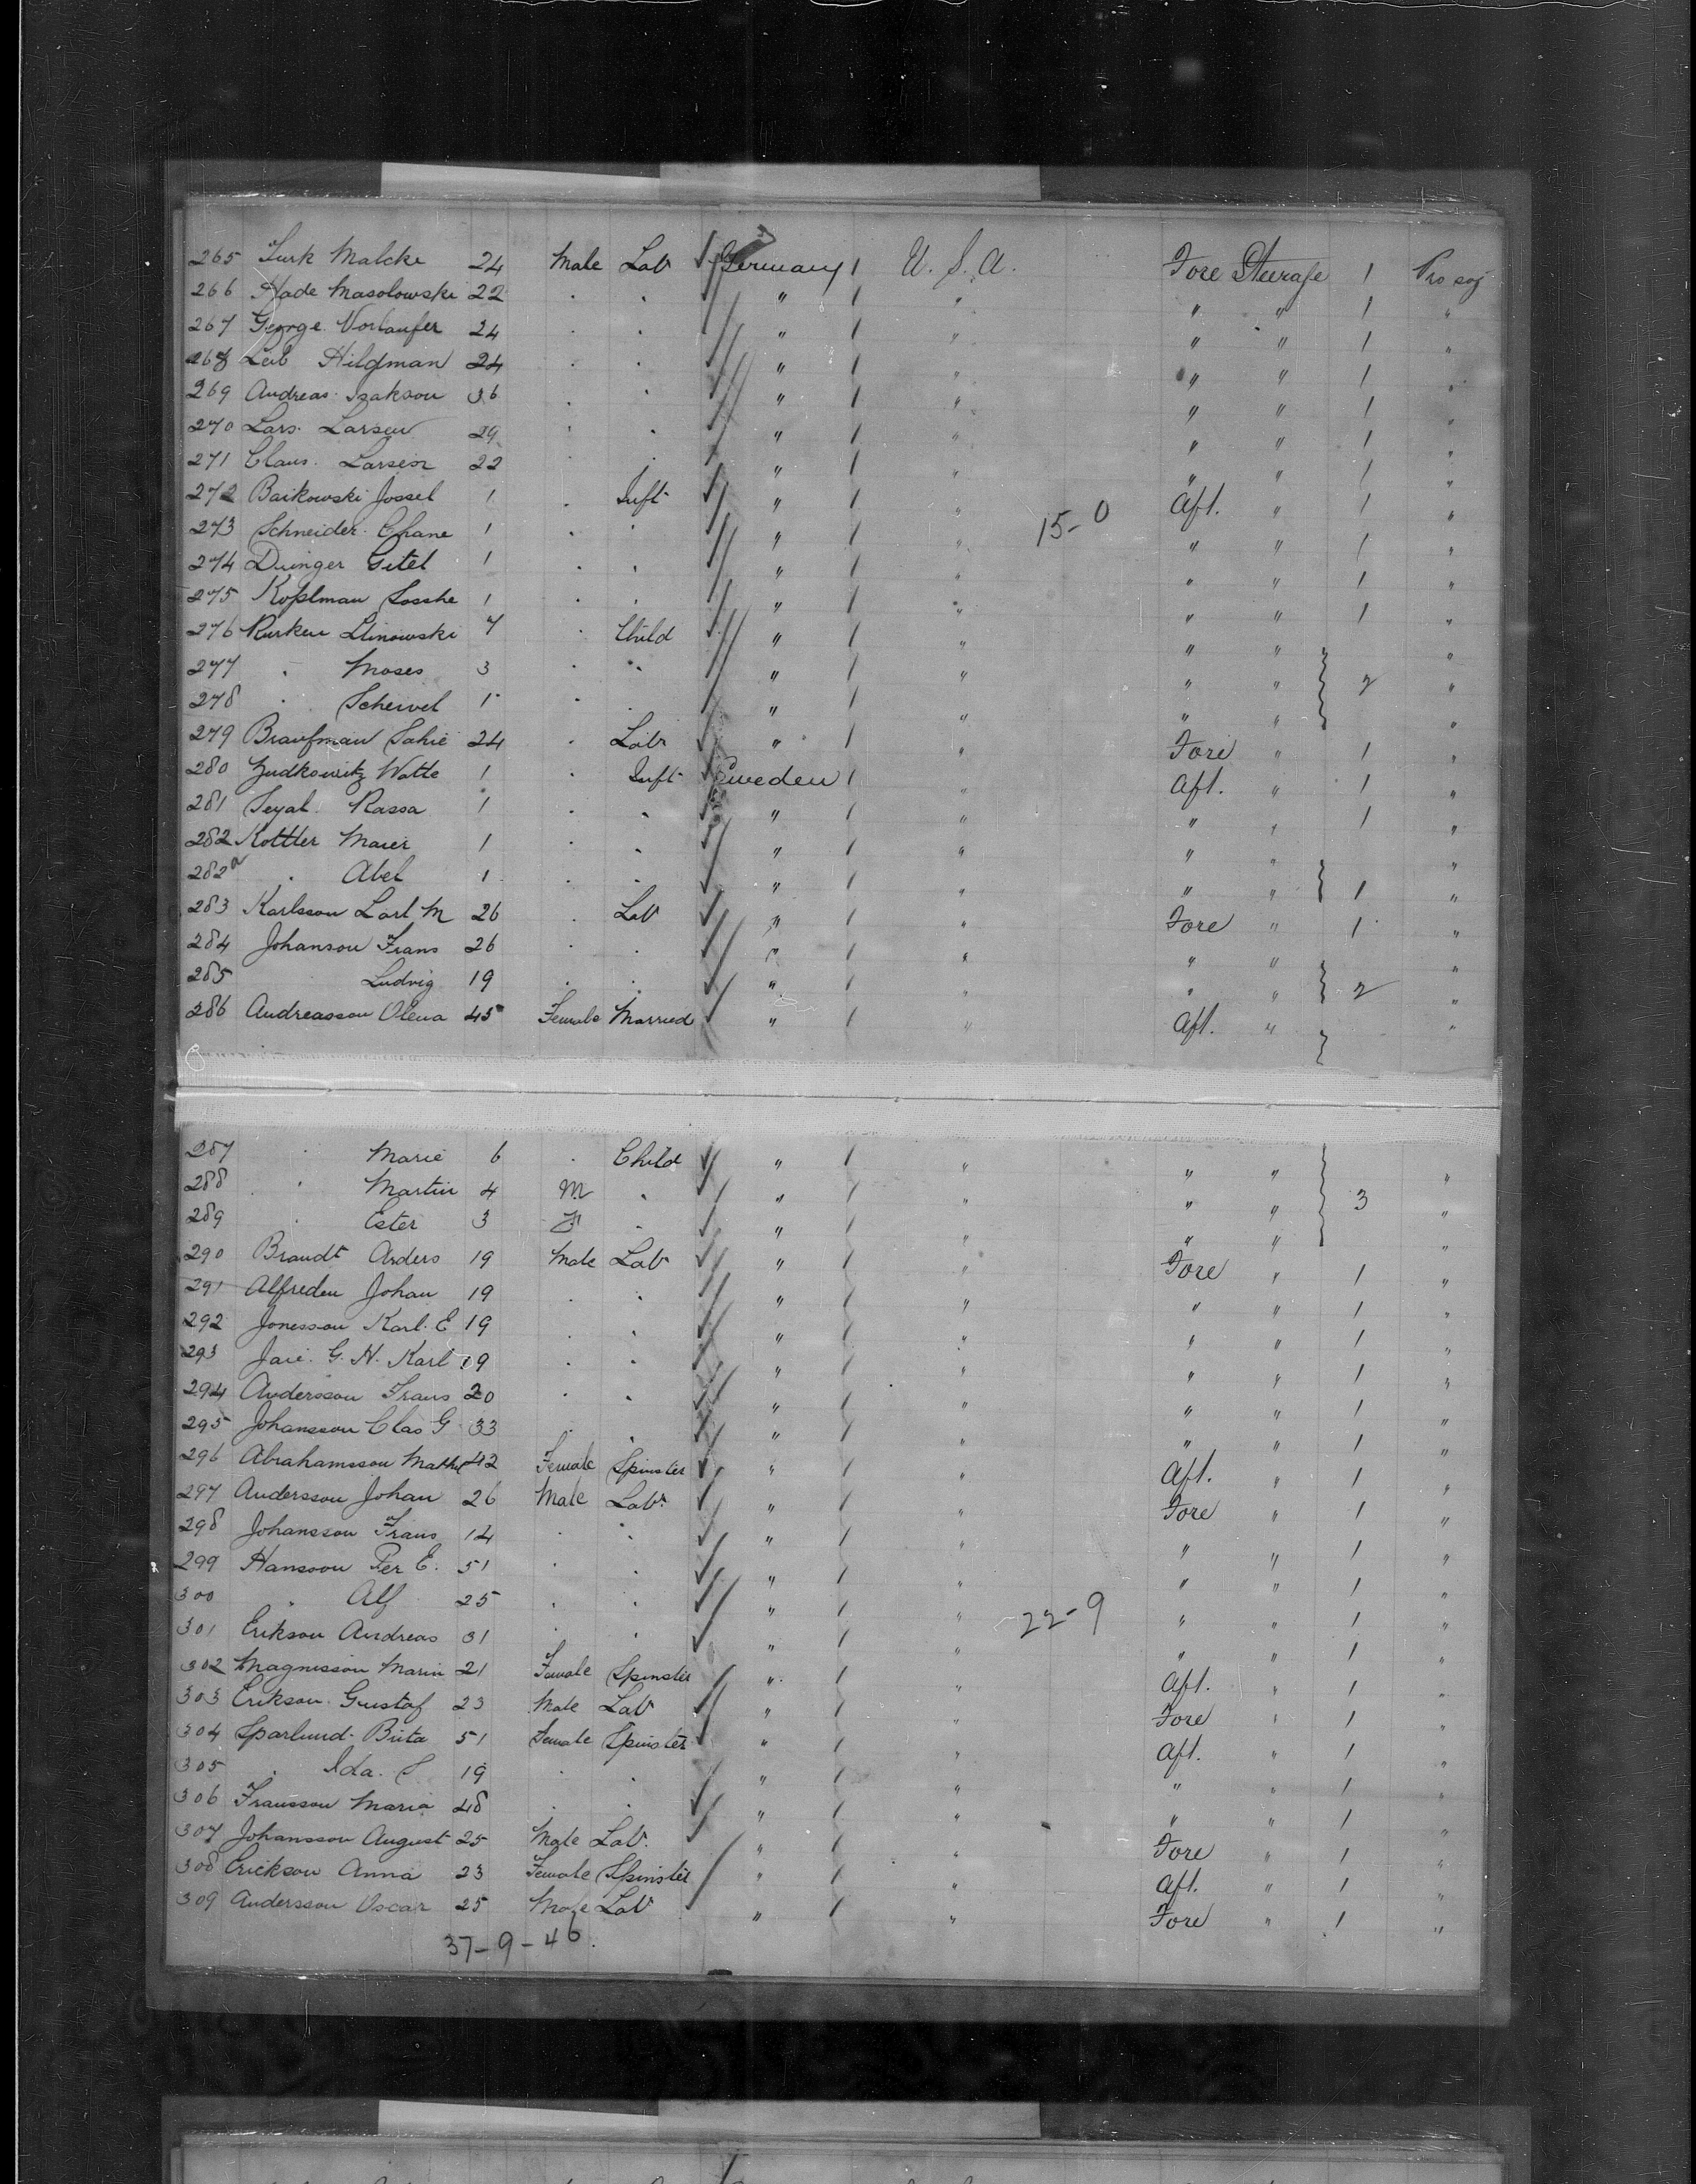 265 Turk Malcke 24 Male Lab Germany 1 U. S. A. Fore Steerage 1 Pro soj
266 Hade Masolowski 22 . . " 1 " " " 1 "
267 George Vorlaufer 24 . . " 1 " " " 1 "
268 Leib Hildman 24 . . " 1 " " " 1 "
269 Andreas Isakson 36 . . " 1 " " " 1 "
270 Lars Larsen 29 . . " 1 " " " 1 "
271 Claus Larsen 22 . . " 1 " " " 1 "
272 Baikowski Jossel 1 . Inft " 1 " Aft. " 1 "
15-0
273 Schneider Chane 1 . . " 1 " " " 1 "
274 Dwinger Gitel 1 . . " 1 " " " 1 "
275 Koplman Sosshe 1 . . " 1 " " " 1 "
276 Rurken Llinowski 7 . Child " 1 " " " "
277 " Moses 3 . . " 1 " " " 2 "
278 " Schewel 1 . . " 1 " " " "
279 Braufman Sahie 24 . Lab " 1 " Fore " 1 "
280 Zudkowitz Watte 1 . Inft Sweden 1 " Aft. " 1 "
281 Seyal Rassa 1 . . " 1 " " " 1 "
282 Kottler Maier 1 . . " 1 " " " "
282a " Abel 1 . . " 1 " " " 1 "
283 Karlsson Carl M 26 . Lab " 1 " Fore " 1 "
284 Johanson Frans 26 . . " 1 " " " "
285 Ludvig 19 . . " 1 " " " 2 "
286 Andreasson Olena 45 Female Married " 1 " Aft. " "
287 " Marie 6 . Child " 1 " " " "
288 " Martin 4 M . " 1 " " " 3 "
289 " Ester 3 F . " 1 " " " "
290 Brandt Anders 19 Male Lab " 1 " Fore " 1 "
291 Alfreden Johan 19 . . " 1 " " " 1 "
292 Jonesson Karl. E 19 . . " 1 " " " 1 "
293 G. H. Karl 19 . . " 1 " " " 1 "
294 Andersson Frans 20 . . " 1 " " " 1 "
295 Johansson Clas G 33 . . " 1 " " " 1 "
296 Abrahamsson 42 Female Spinster " 1 " Aft. " 1 "
297 Andersson Johan 26 Male Lab " 1 " Fore " 1 "
298 Johansson Frans 14 . . " 1 " " " 1 "
299 Hansson Per E. 51 . . " 1 " " " 1 "
300 " Alf 25 . . " 1 " " " 1 "
22-9
301 Erikson Andreas 31 . . " 1 " " " 1 "
302 Magnisson Marin 21 Female Spinster " 1 " Aft. " 1 "
303 Erikson Gustaf 23 Male Lab " 1 " Fore " 1 "
304 Sparlund Brita 51 Female Spinster " 1 " Aft. " 1 "
305 " Ida. S 19 . . " 1 " " " 1 "
306 Fransson Maria 48 . . " 1 " " " 1 "
307 Johansson August 25 Male Lab. " 1 " Fore " 1 "
308 Erickson Anna 23 Female Spinster " 1 " Aft. " 1 "
309 Andersson Oscar 25 Male Lab " 1 " Fore " 1 "
37-9-46.